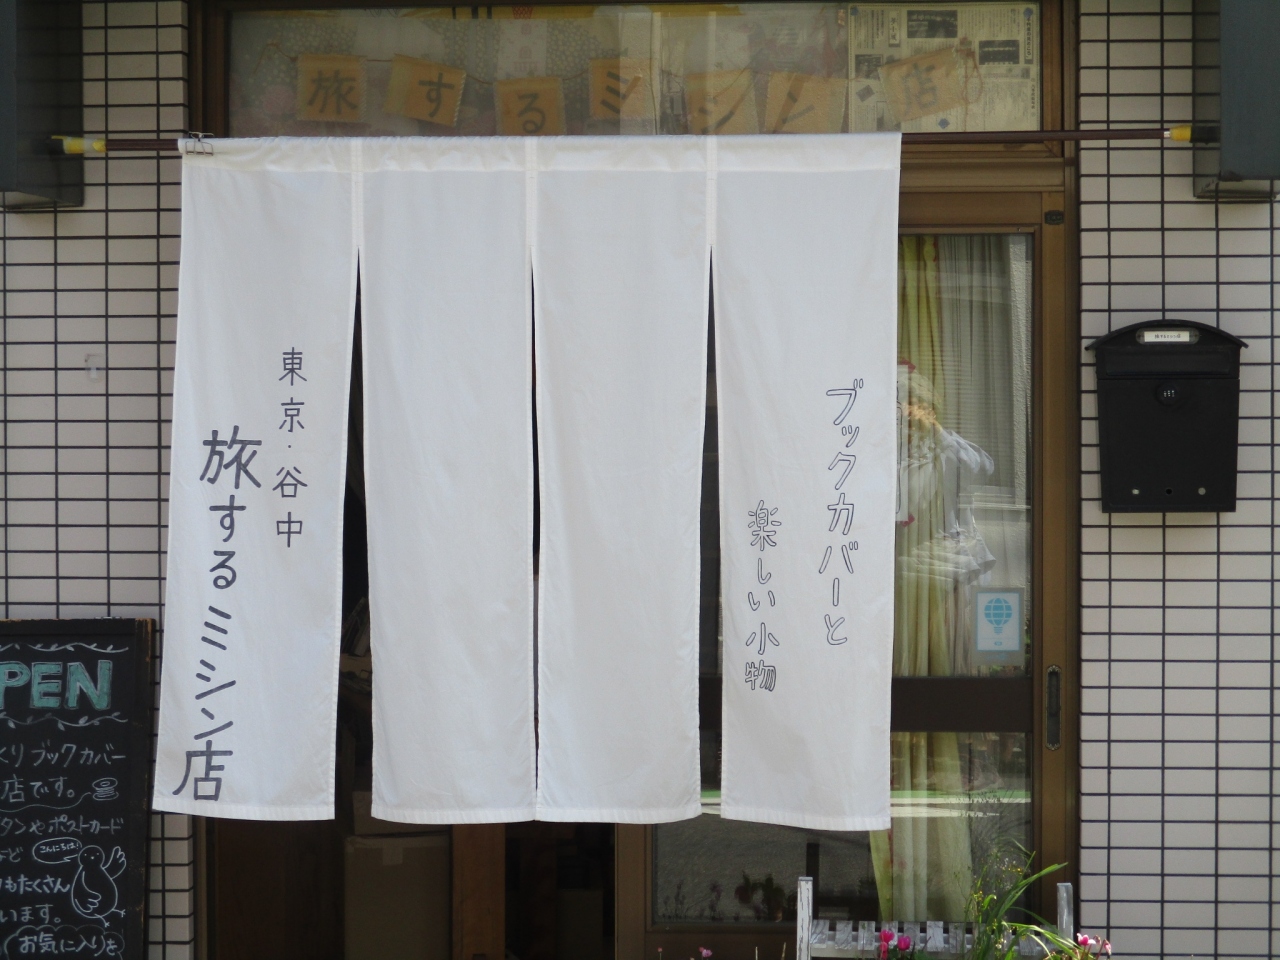 旅するミシン店
ブックカバーと
楽しい小物
東京・谷中
旅するミシン店
PEN
くりブックカバー
店です。
タンやポストカード
など
こんにちは!
もたくさん
います。
お気に入りを